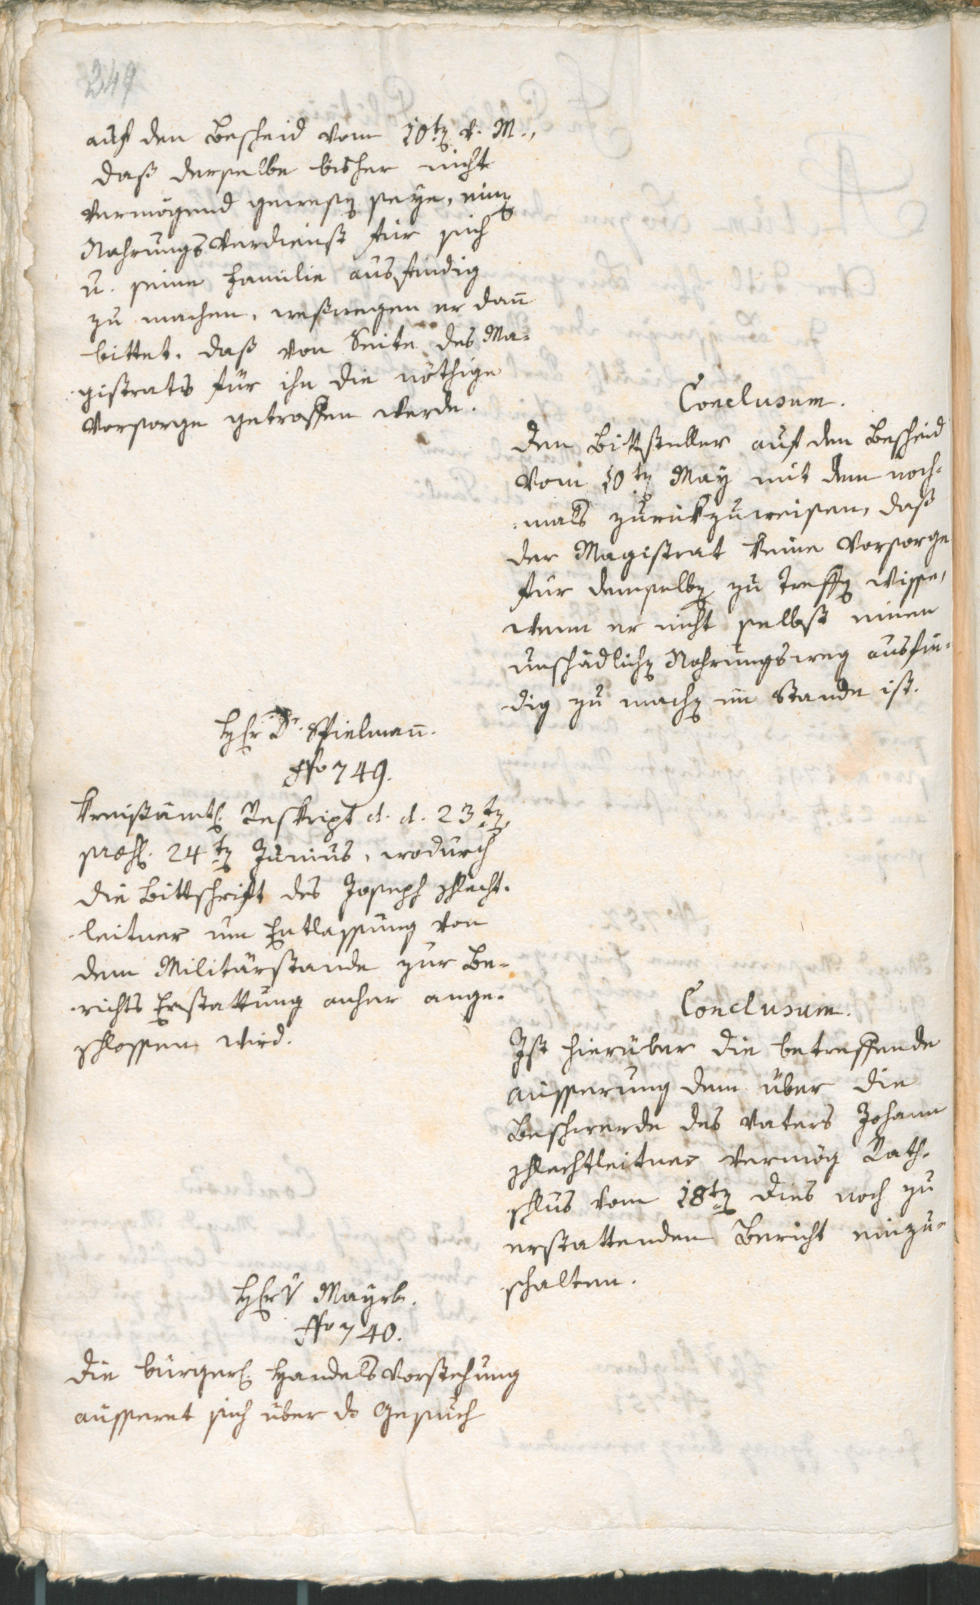 249
auf den Bescheid vom 10tn v. M.,
daß derselbe bisher nicht
vermögend gewesen seye, einen
Nahrungs Verdienst für sich
u. seine Familie ausfindig
zu machen, weßwegen er dann
bittet, daß von Seite des Ma-
gistrats für ihn die nöthige
Vorsorge getroffen werde.
Conclusum.
Den Bittsteller auf den Bescheid
vom 10tn May mit dem noch-
mals zurückzuweisen, daß
der Magistrat keine Vorsorge
für demselben zu treffen wisse,
wenn er nicht selbst einen
unschädlichen Nahrungsweg ausfin-
dig zu machen im Stande ist.
H Hr Dr. Spielmann.
No 749.
Kreisämtl. Reskript d. d. 23tn,
praes. 24tn Junius, wodurch
die Bittschrift des Joseph Schlecht-
leitner um Entlassung von
dem Militärstande zur Be-
richts Erstattung anher ange-
schlossen wird.
Conclusum.
Ist hierüber die betreffende
Äusserung dem über die
Beschwerde des Vaters Johann
Schlechtleitner vermög Rath-
schlus vom 18tn dies noch zu
erstattenden Bericht einzu-
schalten.
H Hr v Mayrl.
No 740.
Die bürgerl. Handels Vorstehung
äusseret sich über ds Gesuch